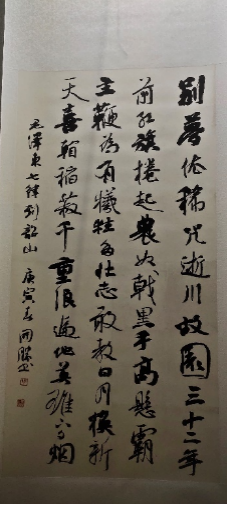 別夢依稀咒逝川故園三十二年
前红旗捲起農奴戟黑手高懸霸
主鞭為有犧牲多壮志敢教日月换新
天喜看稻菽千重浪遍地英雄下夕烟
毛澤東七律到韶山 庚寅春